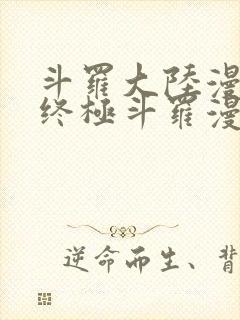 斗羅大陸漫
终極斗羅漫
逆命而生、背